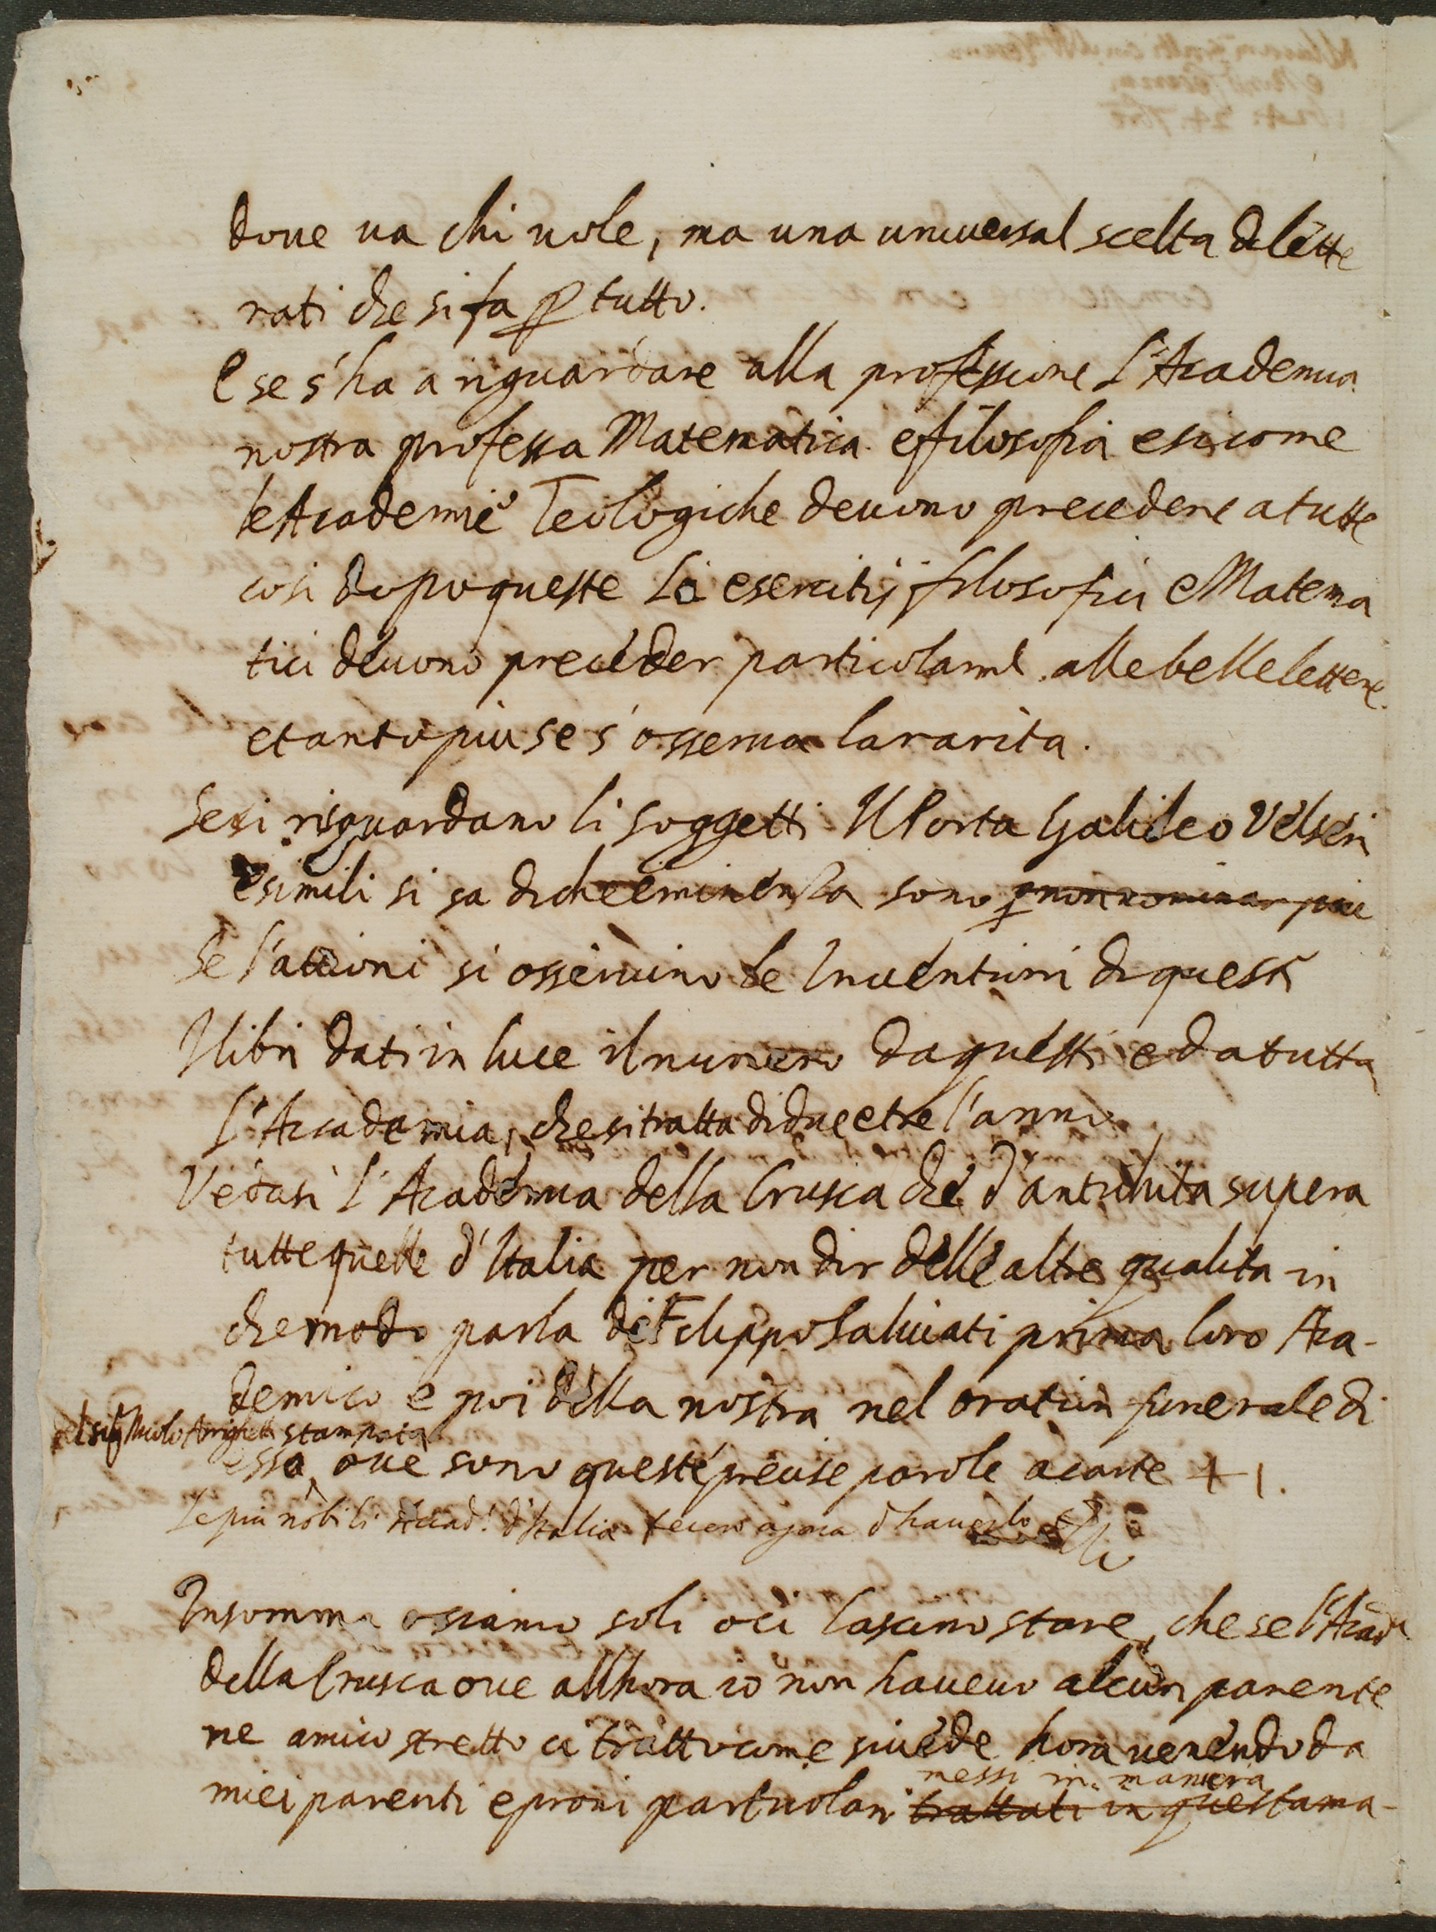 doue ua chi uole, ma una uniuersal scelta de lette
rati che si fa p tutto.
E se s'ha a riguardare alla professione l'Academia
nostra professa Matematica e filosofia e sicome
le Academie Teologiche deuono precedere a tutte
cosi dopo queste li esercitij filosofici e Matema
tici deuono preceder particolarmte alle belle lettere
e tanto piu se s'osserua la rarita.
Se si risguardano li soggetti Il Porta Galileo Velseri
e simili si sa di che eminenza sono p non nominar piu
Se l'attioni si osseruino le Inuentioni di questi
I libri dati in luce il numero da questi e da tutta
l'Accademia, che si tratta di due e tre l'anno
Vedasi l'Academia della Crusca che d'antichita supera
tutte quelle d'Italia per non dir delle altre qualita in
che modo parla di Filippo Saluiati prima loro Aca-
demico e poi della nostra nel oration funerale di
del sigr Nicolo Arrighetti stampata
essa oue sono queste precise parole a carte 41.
Le piu nobili Accad. d'Italia fecero a gara d'hauerlo
Insomma o siamo soli o ci lascino stare, che se l'Acada
della Crusca oue allhora io non haueuo alcun parente
ne amico stretto ci trattò come si uede hora uenendo da
messi in maniera
miei parenti e proni particolari trattati in questa ma-